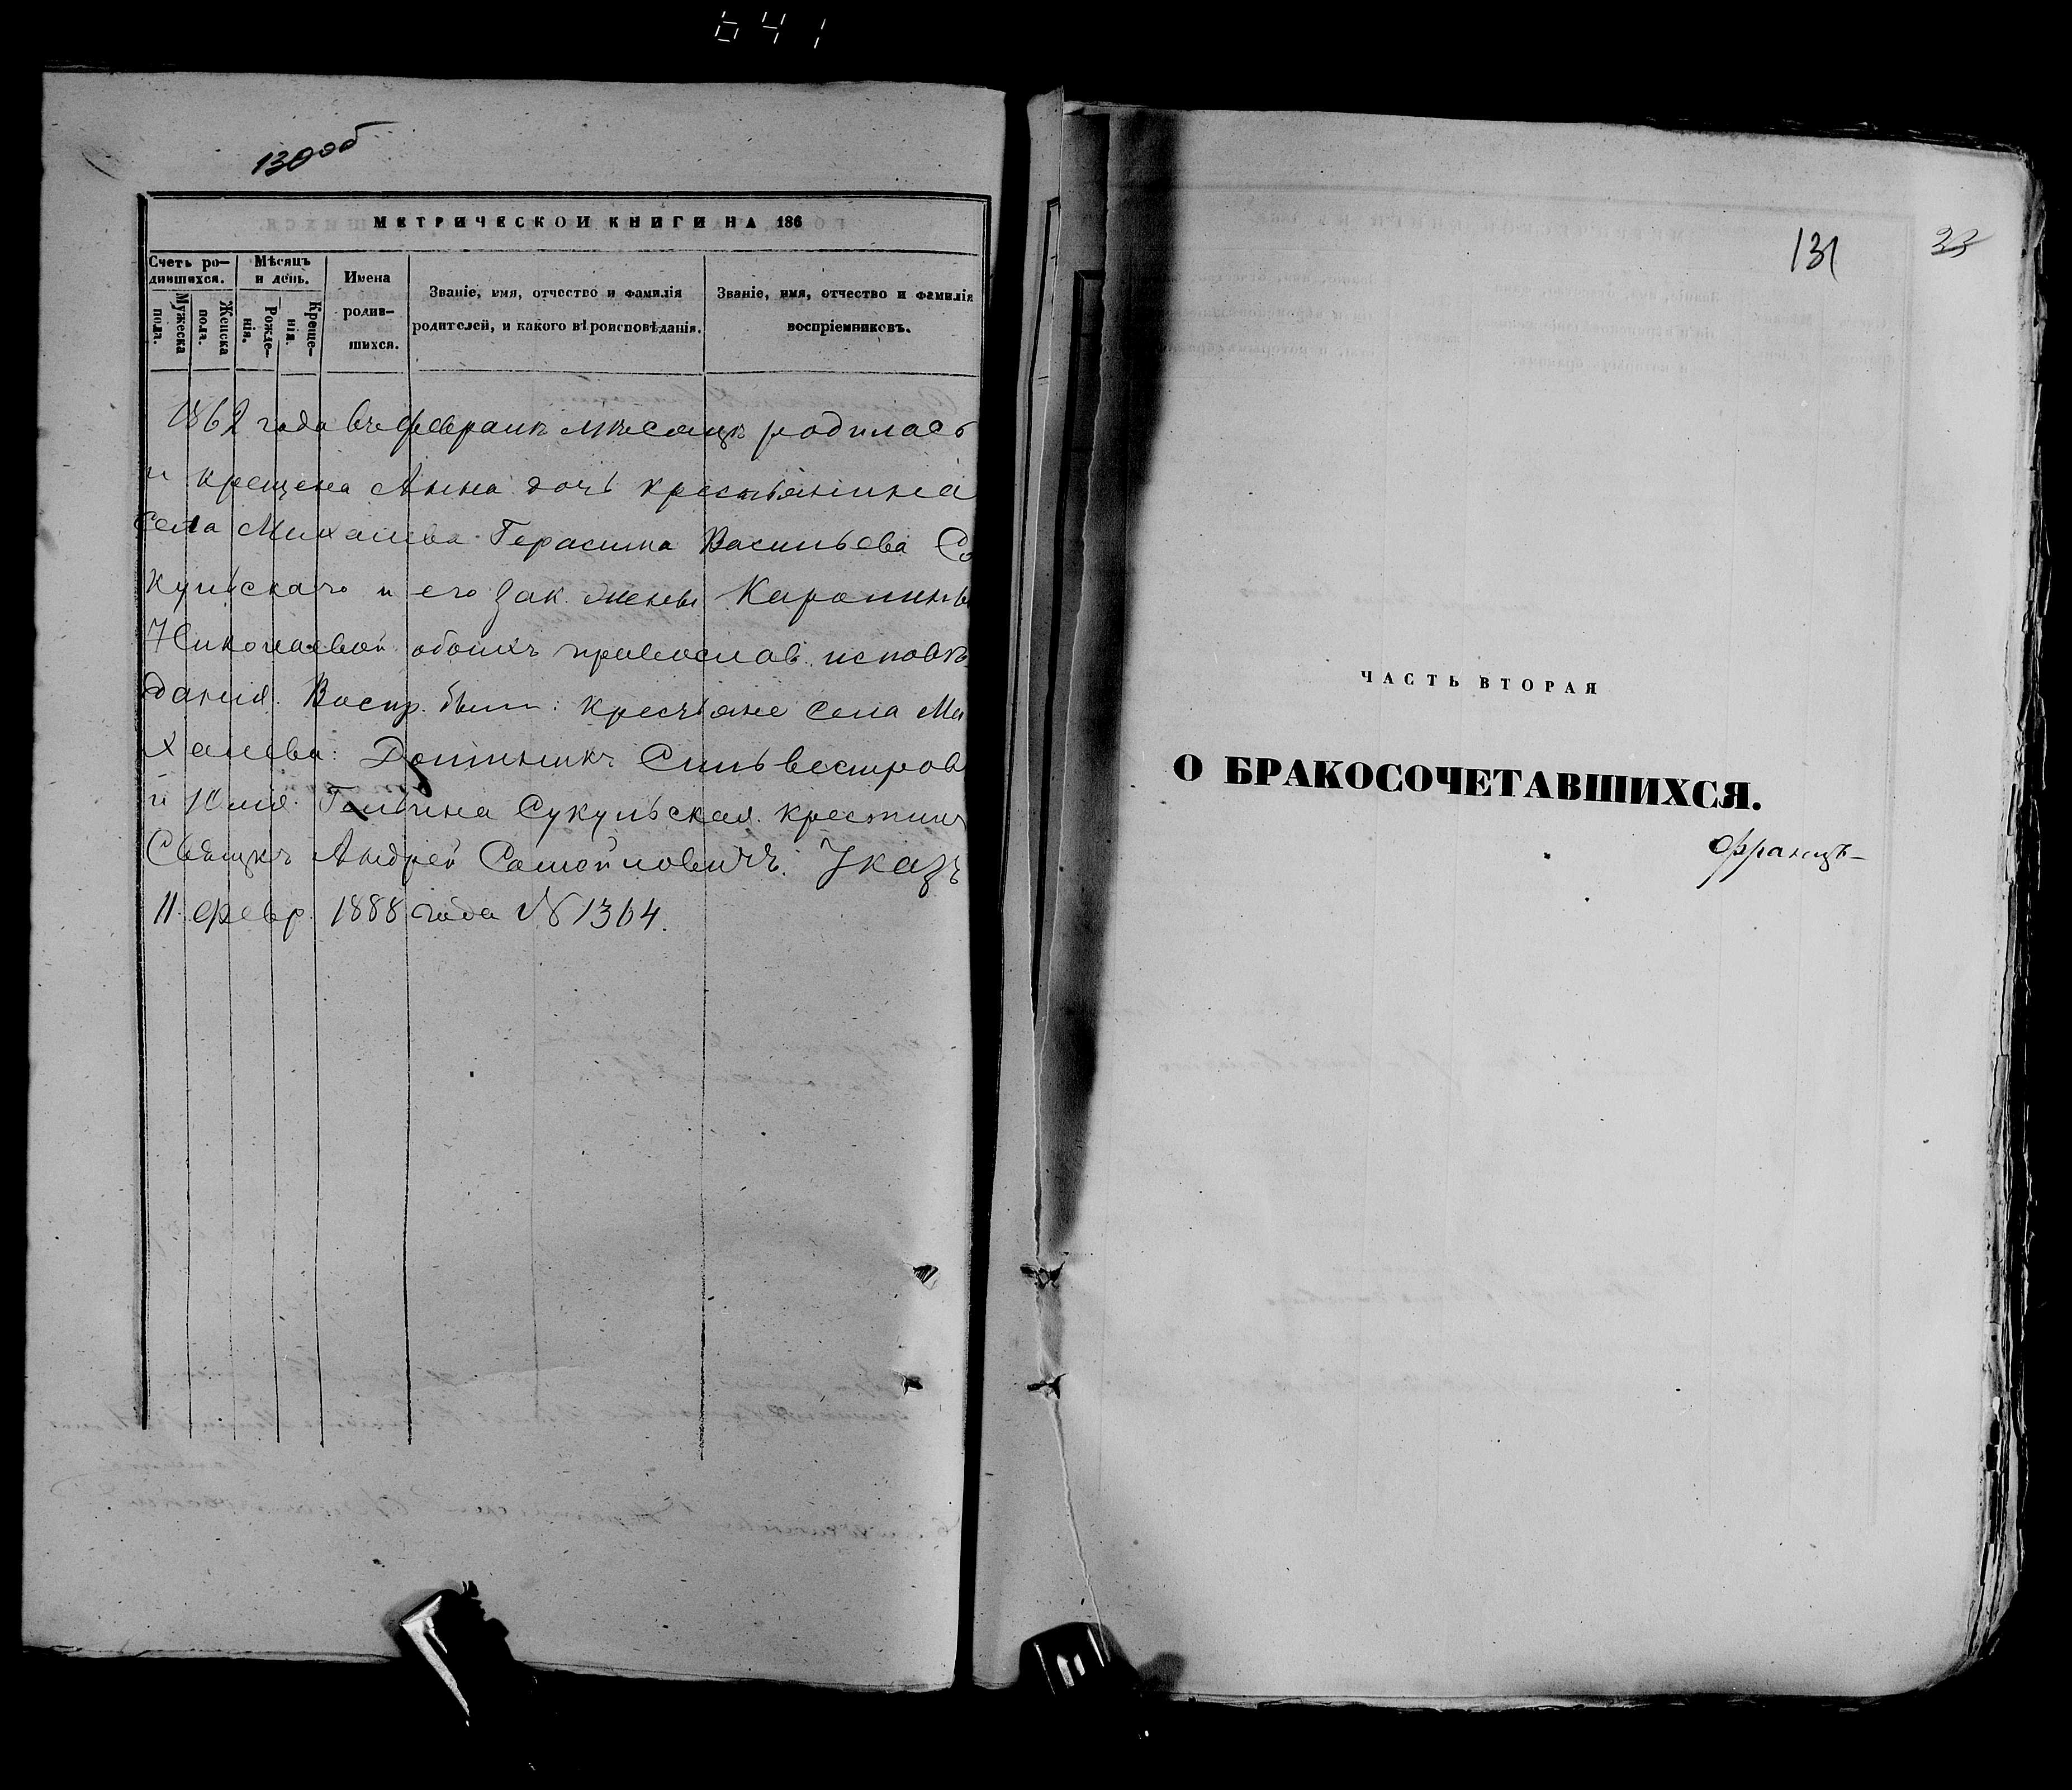 641
130 об
МЕТРИЧЕСКОЙ КНИГИ НА 186
Счетъ ро-
дившихся.
Мужеска
пола.
Женска
пола.
Мѣсяцъ
и день.
Рожде-
нія.
Креще-
нія.
Имена
родив-
шихся.
Званіе, имя, отчество и фамилія
родителей, и какого вѣроисповѣданія.
Званіе, имя, отчество и фамилія
воспріемниковъ.
1862 года въ февралѣ мѣсяцѣ родилась
и крещена Анна дочь крестьянина
села Михалева Герасима Васильева Су
кульскаго и его зак. жены Каролины
Николаевой обоихъ православ. исповѣ-
данія. Воспр. были: крестьяне села Ми
халева: Доминикъ Сильвестров
и Юлія Гальина Сукульская. крестил
Свящкъ Андрей Самойловичъ. Указъ
11 февр. 1888 года № 1364.
131
23
ЧАСТЬ ВТОРАЯ
О БРАКОСОЧЕТАВШИХСЯ.
Францъ-